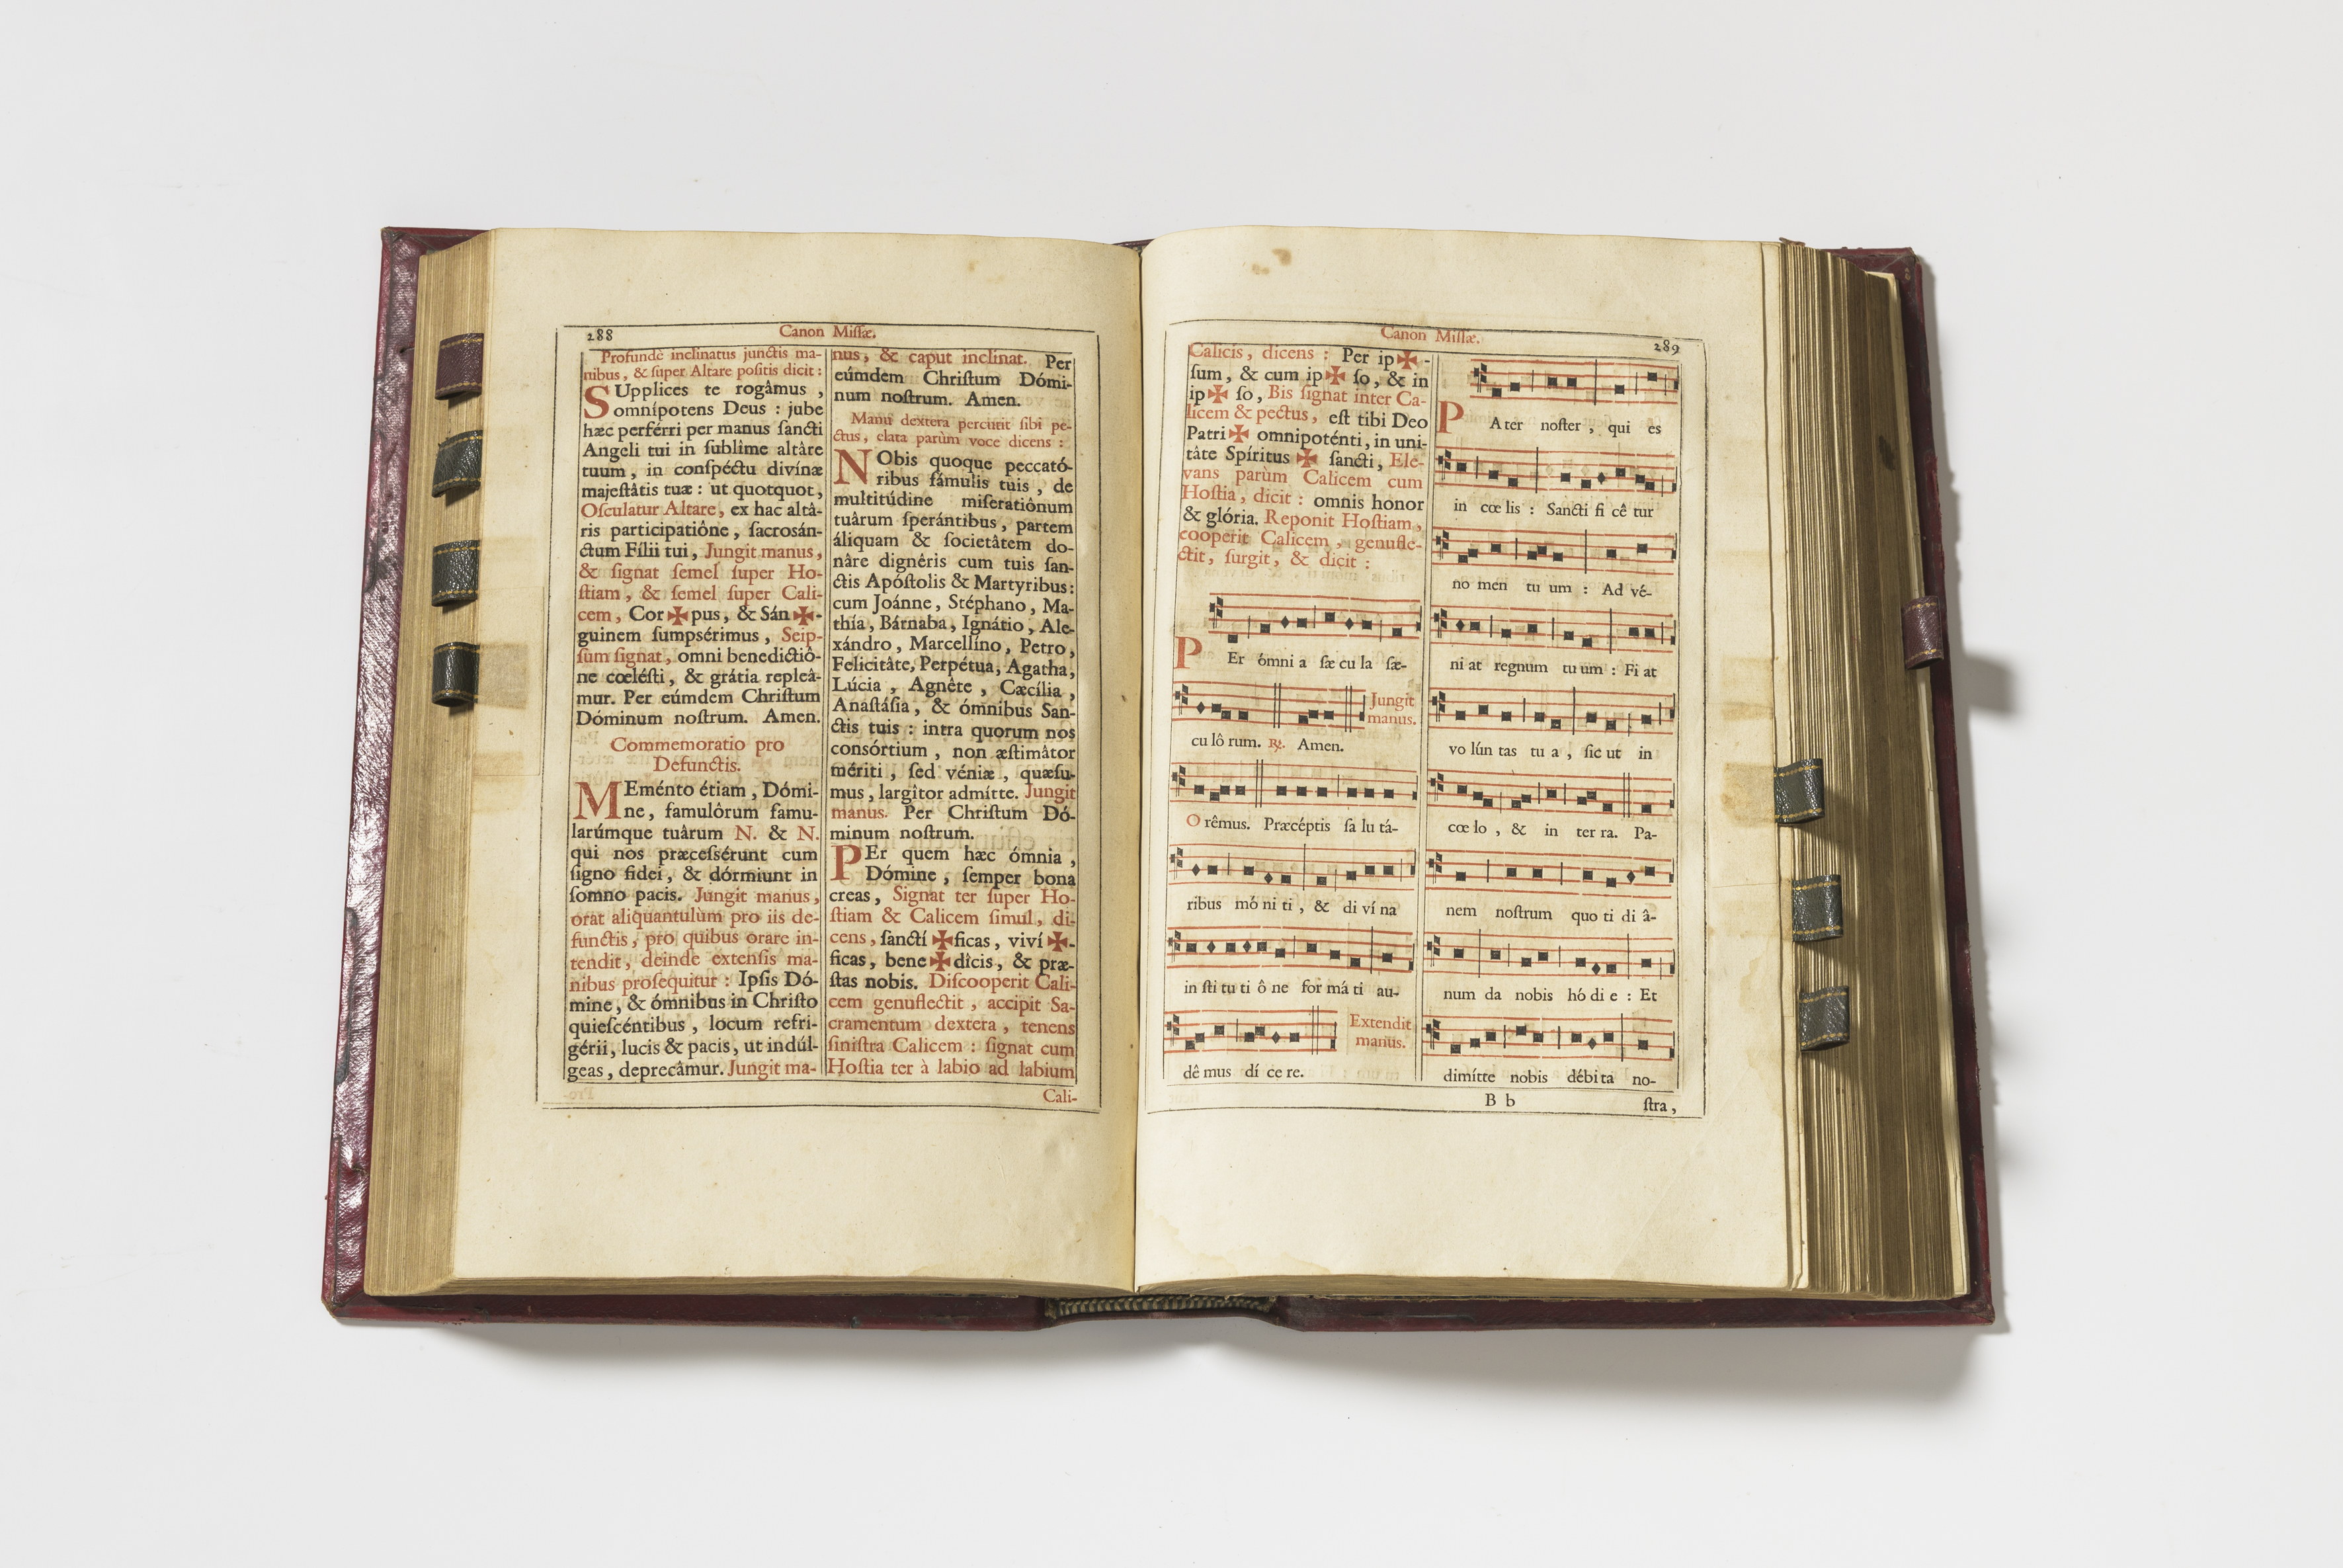 288
Canon Miſſæ.
Profundè inclinatus junctis ma-
nibus, & ſuper Altare poſitis dicit :
SUpplices te rogâmus ,
omnípotens Deus : jube
hæc perférri per manus ſancti
Angeli tui in ſublîme altâre
tuum , in conſpéctu divínæ
majeſtâtis tuæ : ut quotquot,
Oſculatur Altare, ex hac altâ-
ris participatiône , ſacroſán-
ctum Fílii tui , Jungit manus,
& ſignat ſemel ſuper Ho-
ſtiam , & ſemel ſuper Cali-
cem, Cor ✠ pus, & Sán ✠ -
guinem ſumpsérimus , Seip-
ſum ſignat, omni benedictiô-
ne cœléſti, & grátia repleâ-
mur. Per eúmdem Chriſtum
Dóminum noſtrum. Amen.
Commemoratio pro
Defunctis.
MEménto étiam , Dómi-
ne, famulôrum famu-
larúmque tuârum N. & N.
qui nos præceſſérunt cum
ſigno fidei, & dórmiunt in
ſomno pacis. Jungit manus,
orat aliquantulùm pro iis de-
functis, pro quibus orare in-
tendit, deinde extenſis ma-
nibus proſequitur : Ipſis Dó-
mine, & ómnibus in Chriſto
quieſcéntibus , locum refri-
gérii, lucis & pacis, ut indúl-
geas, deprecâmur. Jungit ma-
nus, & caput inclinat. Per
eúmdem Chriſtum Dómi-
num noſtrum. Amen.
Manu dextera percutit ſibi pe-
ctus, elata parùm voce dicens :
NObis quoque peccató-
ribus fámulis tuis , de
multitúdine miſeratiônum
tuârum ſperántibus, partem
áliquam & ſocietâtem do-
nâre dignêris cum tuis ſan-
ctis Apóſtolis & Martyribus:
cum Joánne, Stéphano, Ma-
thía, Bárnaba, Ignátio, Ale-
xándro, Marcellíno, Petro,
Felicitâte, Perpétua, Agatha,
Lúcia , Agnête , Cæcília ,
Anaſtáſia, & ómnibus San-
ctis tuis : intra quorum nos
conſórtium , non æſtimâtor
mériti , ſed véniæ , quæſu-
mus, largîtor admítte. Jungit
manus. Per Chriſtum Dó-
minum noſtrum.
PEr quem hæc ómnia ,
Dómine , ſemper bona
creas, Signat ter ſuper Ho-
ſtiam & Calicem ſimul, di-
cens, ſanctí ✠ ficas, viví ✠ -
ficas, bene ✠ dîcis, & præ-
ſtas nobis. Diſcooperit Cali-
cem genuflectit, accipit Sa-
cramentum dextera, tenens
ſiniſtra Calicem : ſignat cum
Hoſtia ter à labio ad labium
Cali-
Canon Miſſæ.
289
Calicis, dicens : Per ip ✠ -
ſum, & cum ip ✠ ſo, & in
ip ✠ ſo, Bis ſignat inter Ca-
licem & pectus, eſt tibi Deo
Patri ✠ omnipoténti, in uni-
tâte Spíritus ✠ ſancti, Ele-
vans parùm Calicem cum
Hoſtia, dicit : omnis honor
& glória. Reponit Hoſtiam,
cooperit Calicem, genufle-
ctit, ſurgit, & dicit :
PEr ómni a ſæ cu la ſæ-
Jungit
manus.
cu lô rum. ℟. Amen.
O rêmus. Præcéptis ſa lu tá-
ribus mó ni ti, & di ví na
in ſti tu ti ô ne for má ti au-
Extendit
manus.
dê mus dí ce re.
PAter noſter, qui es
in cœ lis : Sancti fi cê tur
no men tu um : Ad vé-
ni at regnum tu um : Fi at
vo lún tas tu a, ſic ut in
cœ lo, & in ter ra. Pa-
nem noſtrum quo ti di â-
num da nobis hó di e : Et
dimítte nobis débi ta no-
B b
ſtra,